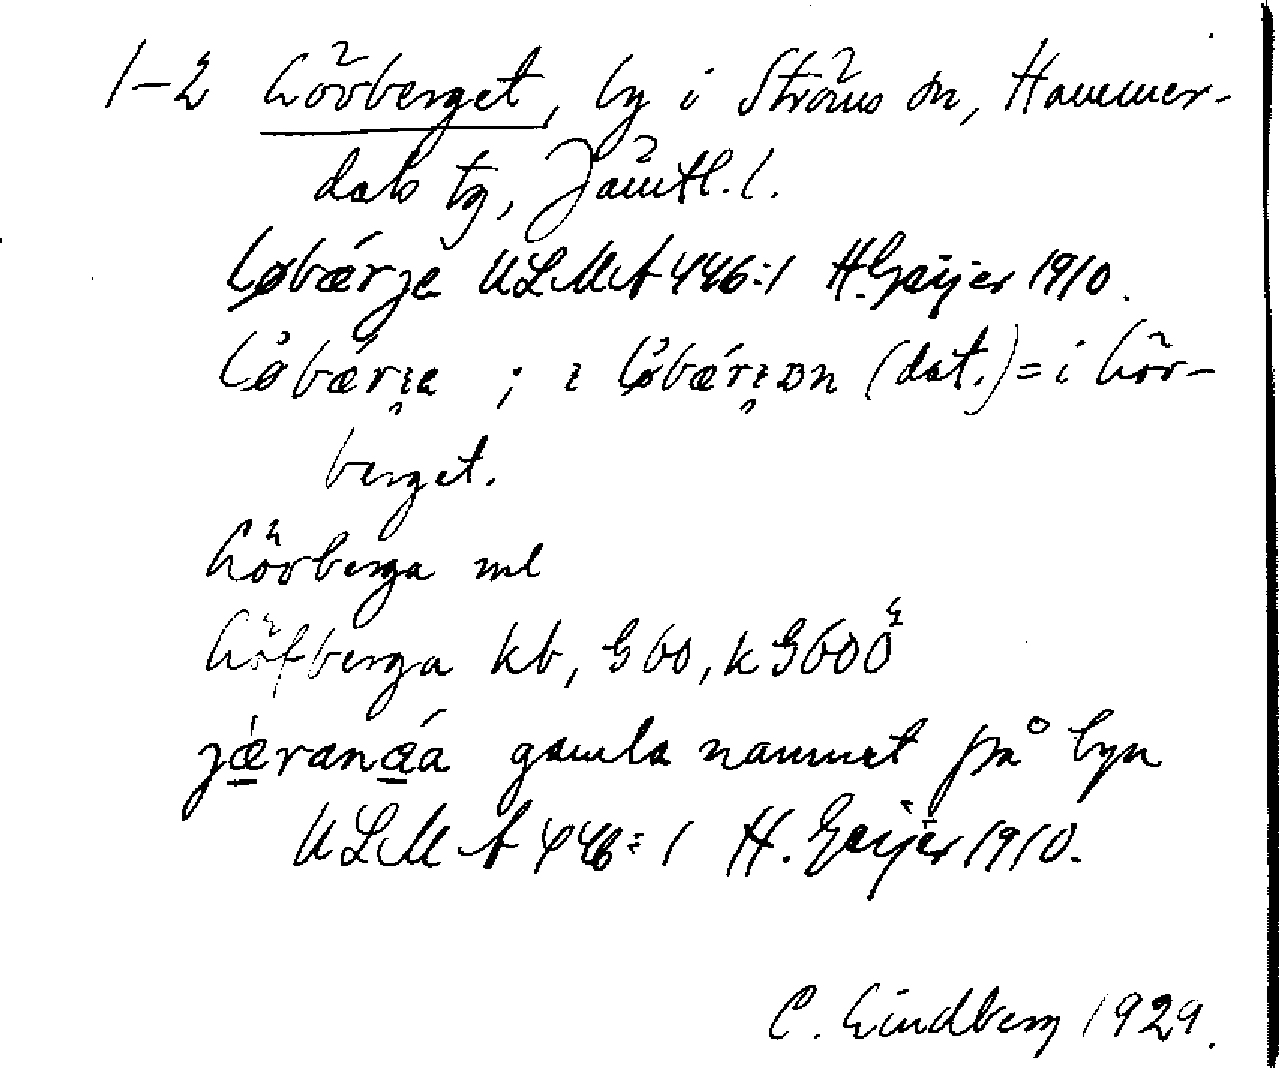 1-2 Lövberget, by i Ströms sn, Hammer-
dals tg, Jämtl. l.
Løbærje ULMA 446:1 H. Geijer 1910.
Løbærı̯e ; ı Løbærı̯ɒn (dat.) = i Löv-
berget.
Lövberga ml
Löfberga kb, Gbo, k GbOÖ
jæranæá gamla namnet på byn
ULMA 446:1 H. Geijer 1910.
C. Lindberg 1929.